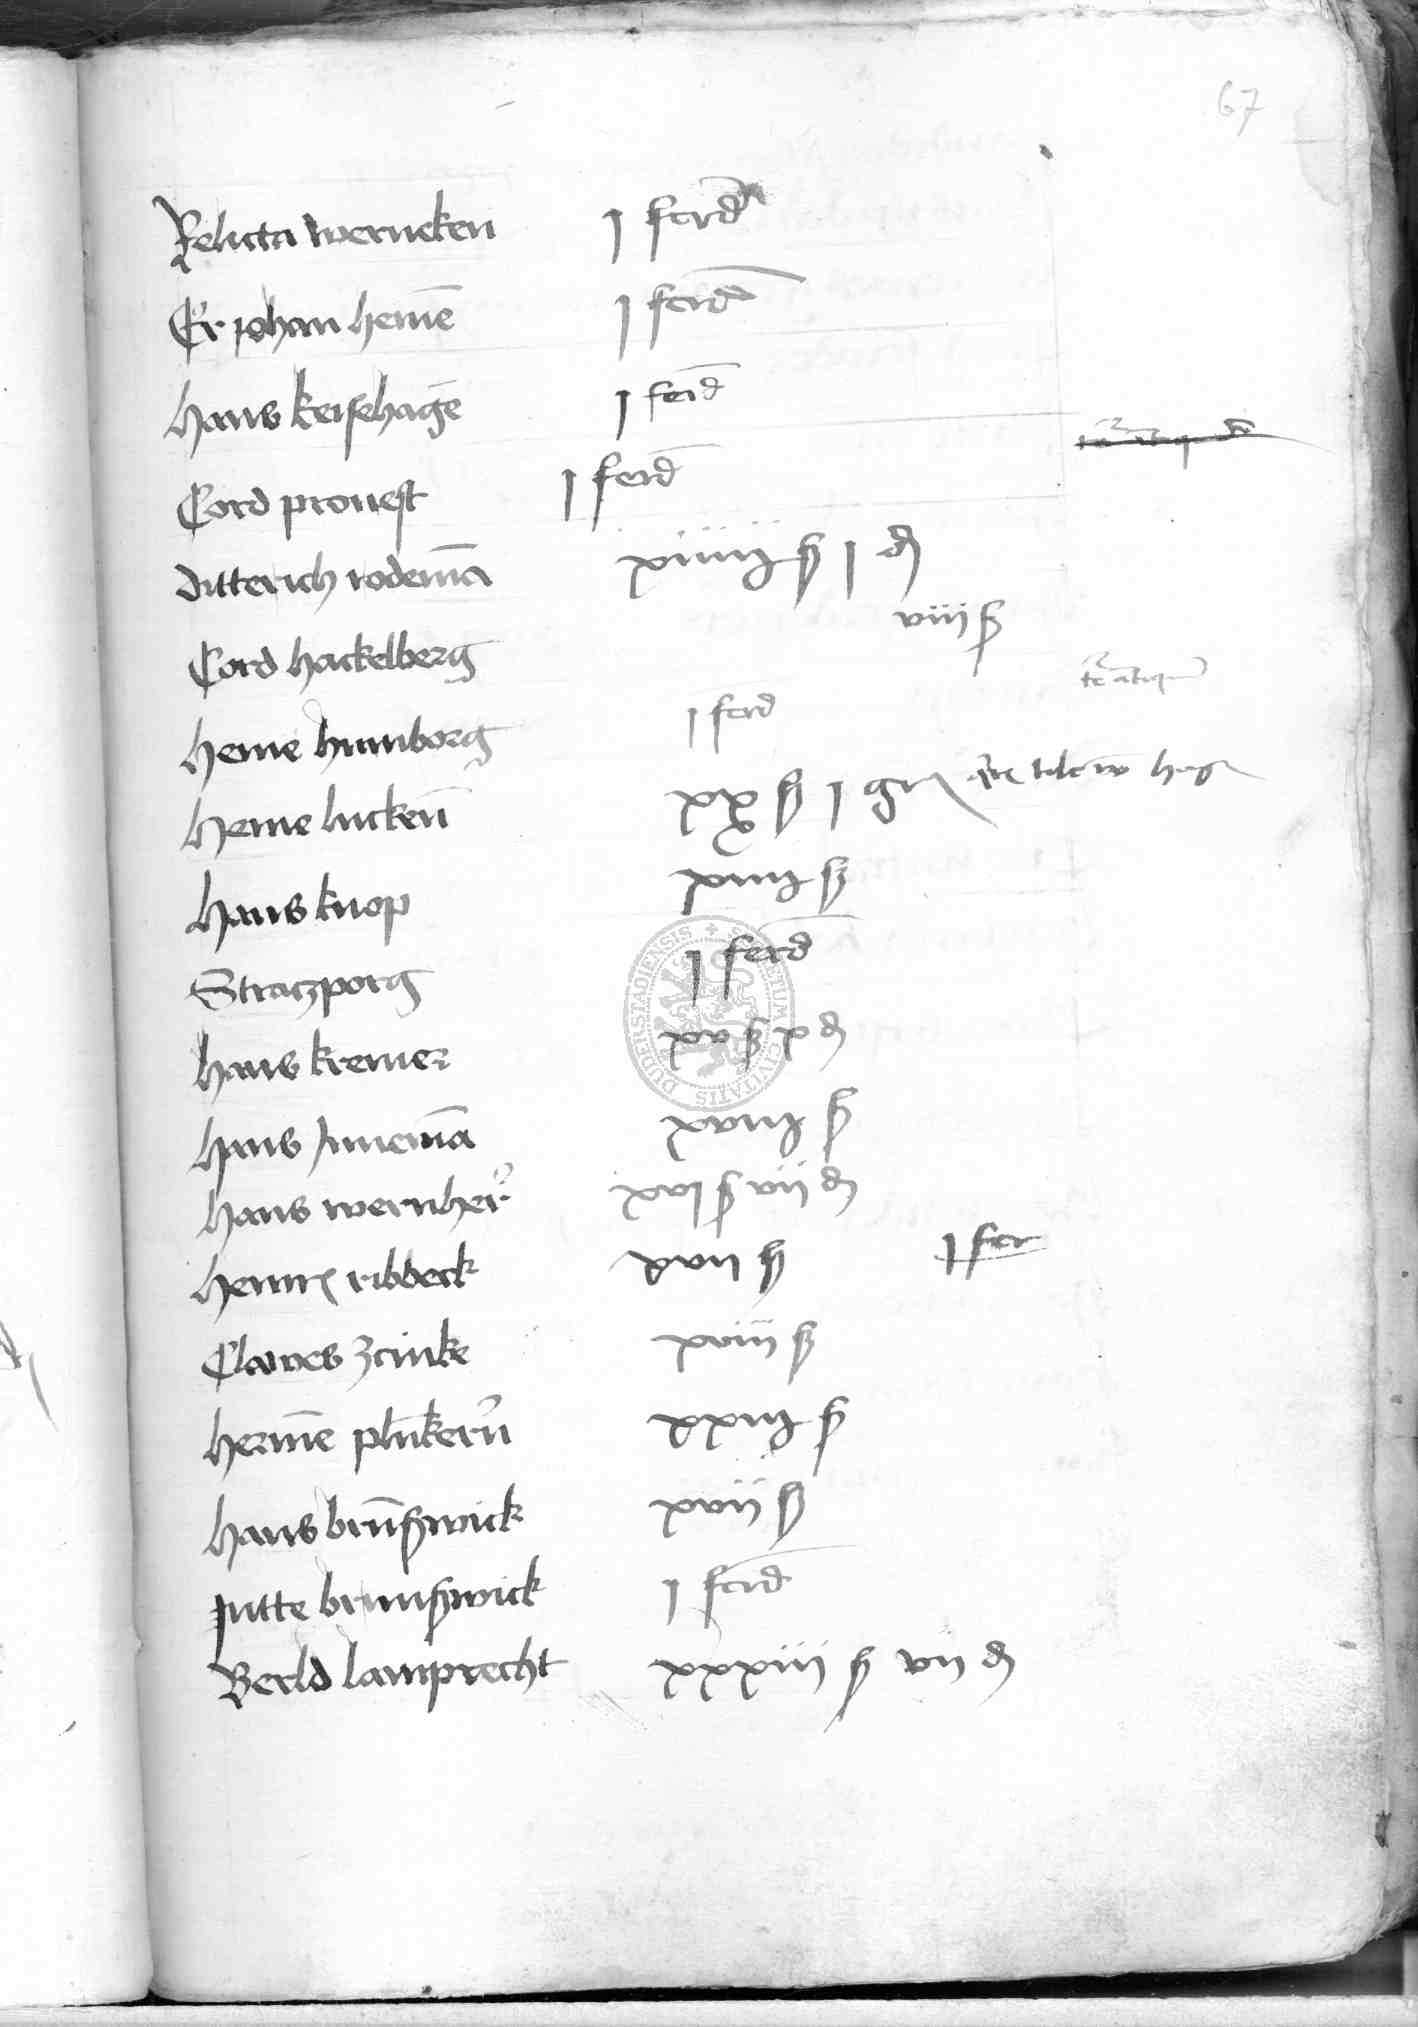 67
Relicta werneken j ferd
Er johan heniē j ferd
hans keisehagē j ferd
Cord prouest j ferd
ditterich rodemā xiiiij ß j d
Cord hackelberg viii ß
heine hunborg j ferd
heine luckeñ xx ß j
hans knop xiiij ß
Stratzporg j ferd
hans kremer xv ß x d
hans māmā xviiij ß
hans wernher xvj ß vii d
henr ribbeck xvii ß j fer
Clawes zcinke xviii ß
hermē plūkern xxiij ß
hans brūßwick xvii ß
jutte brunßwick j ferd
Berld lamprecht xxxiii ß vii d
SECRETUM CIVITATIS DUDERSTADIENSIS